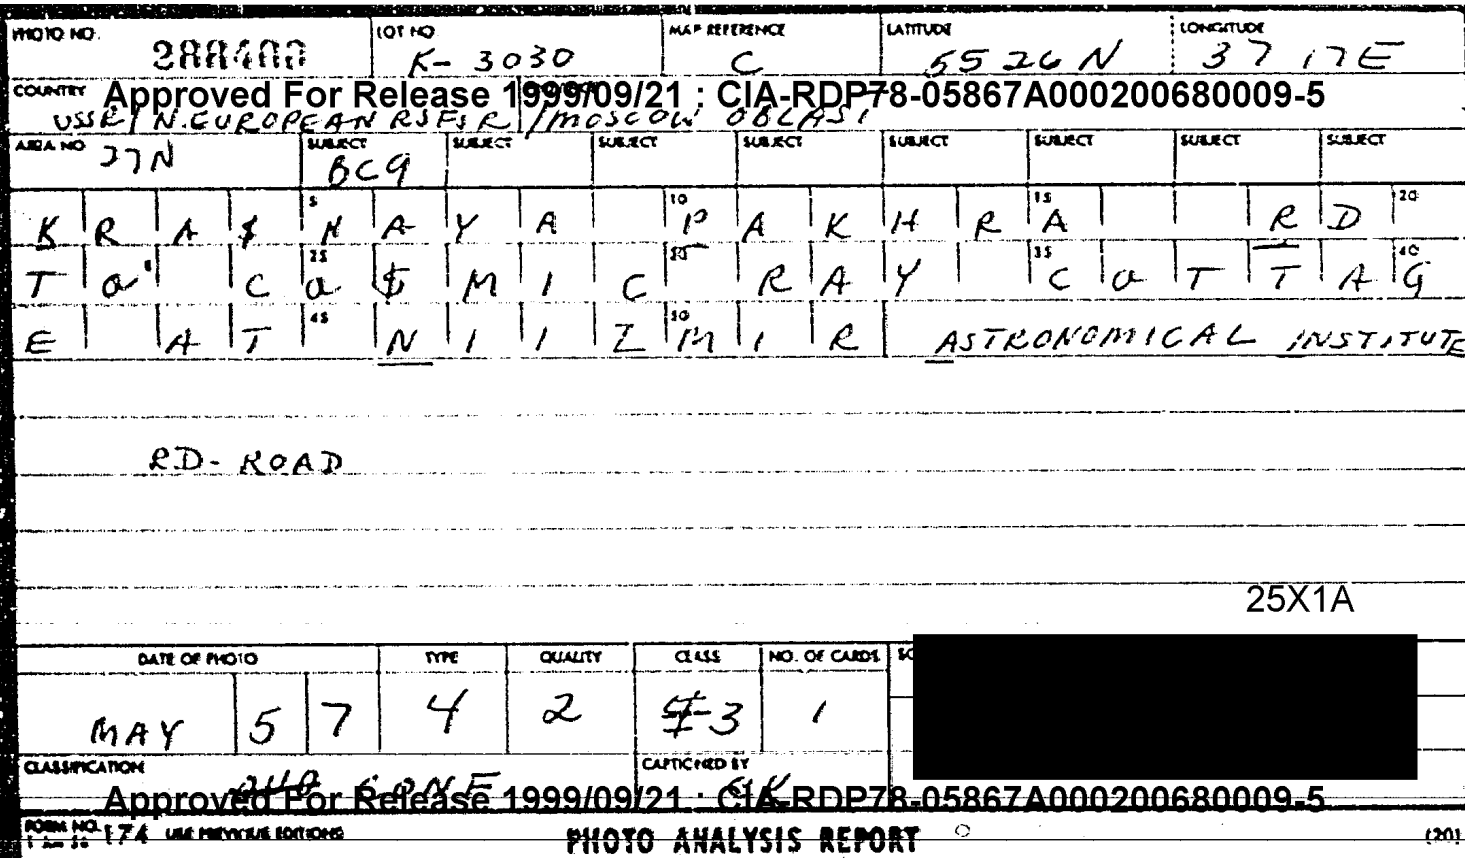 PHOTO NO. LOT NO MAP REFERENCE LATITUDE LONGITUDE
288400 K-3030 C 5526N 37 17E
COUNTRY Approved For Release 1999/09/21 : CIA-RDP78-05867A000200680009-5
USSR/N.EUROPEAN RSFSR/MOSCOW OBLAST
AREA NO SUBJECT SUBJECT SUBJECT SUBJECT SUBJECT SUBJECT SUBJECT SUBJECT
27N BC9
5 10 15 20
KRASNAYA PAKHRA RD
25 30 35 40
TO COSMIC RAY COTTAG
45 50
E AT NIIZMIR ASTRONOMICAL INSTITUTE
RD-ROAD
25X1A
DATE OF PHOTO TYPE QUALITY CLASS NO. OF CARDS
MAY 57 4 2 3 1
CLASSIFICATION CAPTIONED BY
Approved For Release 1999/09/21 : CIA-RDP78-05867A000200680009-5
FORM NO. 174 USE PREVIOUS EDITIONS PHOTO ANALYSIS REPORT (20)